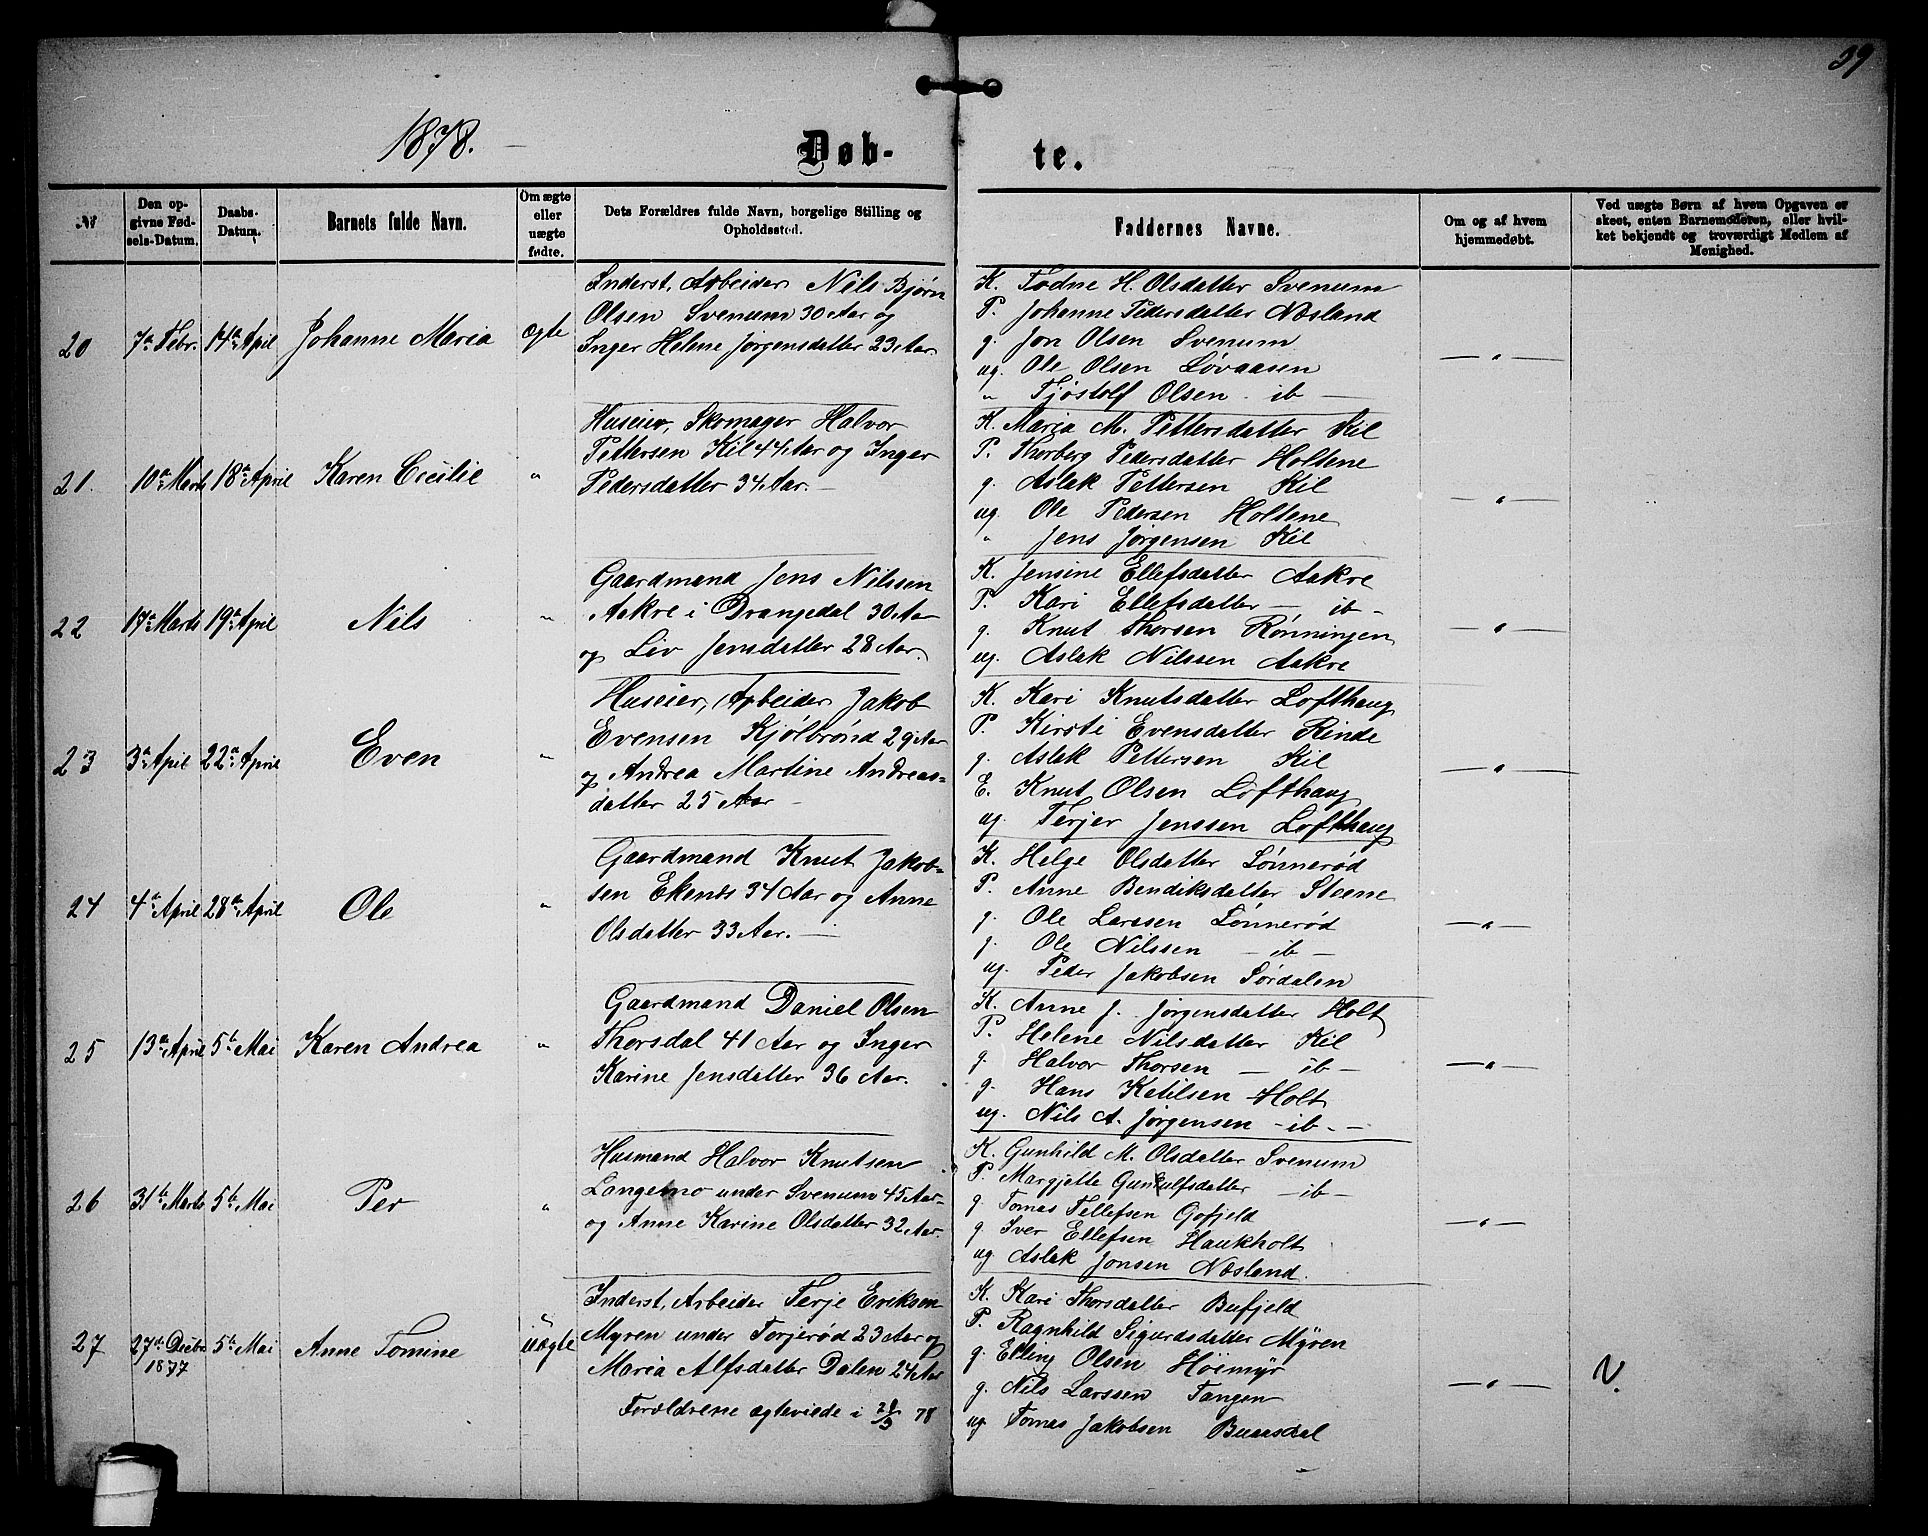 39
1878.
Døb-
te.
№
Den op-
givne Fød-
sels-Datum.
Daabs-
Datum.
Barnets fulde Navn.
Om ægte
eller
uægte
fødte.
Dets Forældres fulde Navn, borgelige Stilling og
Opholdssted.
Faddernes Navne.
Om og af hvem
hjemmedøbt.
Ved uægte Børn af hvem Opgaven er
skeet, enten Barnemoderen, eller hvil-
ket bekjendt og troværdigt Medlem af
Menighed.
20
7de Febr.
14de April
Johanne Maria
ægte
Inderst, Arbeider Nils Bjørn
Olsen Svenum 30 Aar og
Inger Helene Jørgensdatter 23 Aar
K. Todne H. Olsdatter Svenum
P. Johanne Pedersdatter Næsland
g. Jon Olsen Svenum
ug. Ole Olsen Løvaasen
" Tjøstolf Olsen ib —
— " —
21.
10de Marts
18de April
Karen Cecilie
"
Huseier, Skomager Halvor
Pettersen Kil 44 Aar og Inger
Pedersdatter 34 Aar. —
K. Maria M. Pettersdatter Kil
P. Thorberg Pedersdatter Holtene
g. Aslak Pettersen Kil
ug. Ole Pedersen Holtene
" Jens Jørgensen Kil
— " —
22
17de Marts
19de April
Nils
"
Gaardmand Jens Nilssen
Aakre i Drangedal 30 Aar
og Liv Jensdatter 28 Aar.
K. Jensine Ellefsdatter Aakre
P. Kari Ellefsdatter — ib —
g. Knut Thorsen Rønningen
ug. Aslak Nilssen Aakre
— " —
23
3de April
22de April
Even
"
Huseier, Arbeider Jakob
Evensen Kjølbrønd 29 Aar
og Andrea Martine Andreas-
datter 25 Aar —
K. Kari Knutsdatter Lofthaug
P. Kirsti Evensdatter Rinde
g. Aslak Pettersen Kil
E. Knut Olsen Lofthaug
ug. Terjer Jenssen Lofthaug
— " —
24
4de April
28de April
Ole
"
Gaardmand Knut Jakob-
sen Ekenes 34 Aar og Anne
Olsdatter 33 Aar. —
K. Helge Olsdatter Lønnerød
P. Anne Bendiksdatter Steene
g. Ole Larssen Lønnerød
g. Ole Nilssen — ib —
ug. Peder Jakobsen Sørdalen
— " —
25
13de April
5te Mai
Karen Andrea
"
Gaardmand Daniel Olsen
Thorsdal 41 Aar og Inger
Karine Jensdatter 36 Aar.
K. Anne J. Jørgensdatter Holt
P. Helene Nilsdatter Kil
g. Halvor Thorsen — ib —
g. Hans Ketilsen Holt
ug. Nils A. Jørgensen — ib. —
— " —
26
31te Marts
5te Mai
Per
"
Husmand Halvor Knutsen
Langemo under Svenum 45 Aar
og Anne Karine Olsdatter 32 Aar.
K. Gunhild M. Olsdatter Svenum
P. Margjette Gunulfsdatter — ib —
g. Tomas Tellefsen Gofjeld
g. Iver Ellefsen Haukholt
ug. Aslak Jonsen Næsland.
— " —
27
27de Decbr
1877
5te Mai
Anne Tomine
uægte
Inderst, Arbeider Terje Eriksen
Myren under Torjerød 23 Aar og
Maria Alfsdatter Dalen 24 Aar
Forældrene ægteviede i 28/3 78
K. Kari Thorsdatter Bufjeld
P. Ragnhild Sigurdsdatter Myren
g. Elling Olsen Høimyr
g. Nils Larssen Tangen
ug. Tomas Jakobsen Buaasdal
— " —
N.